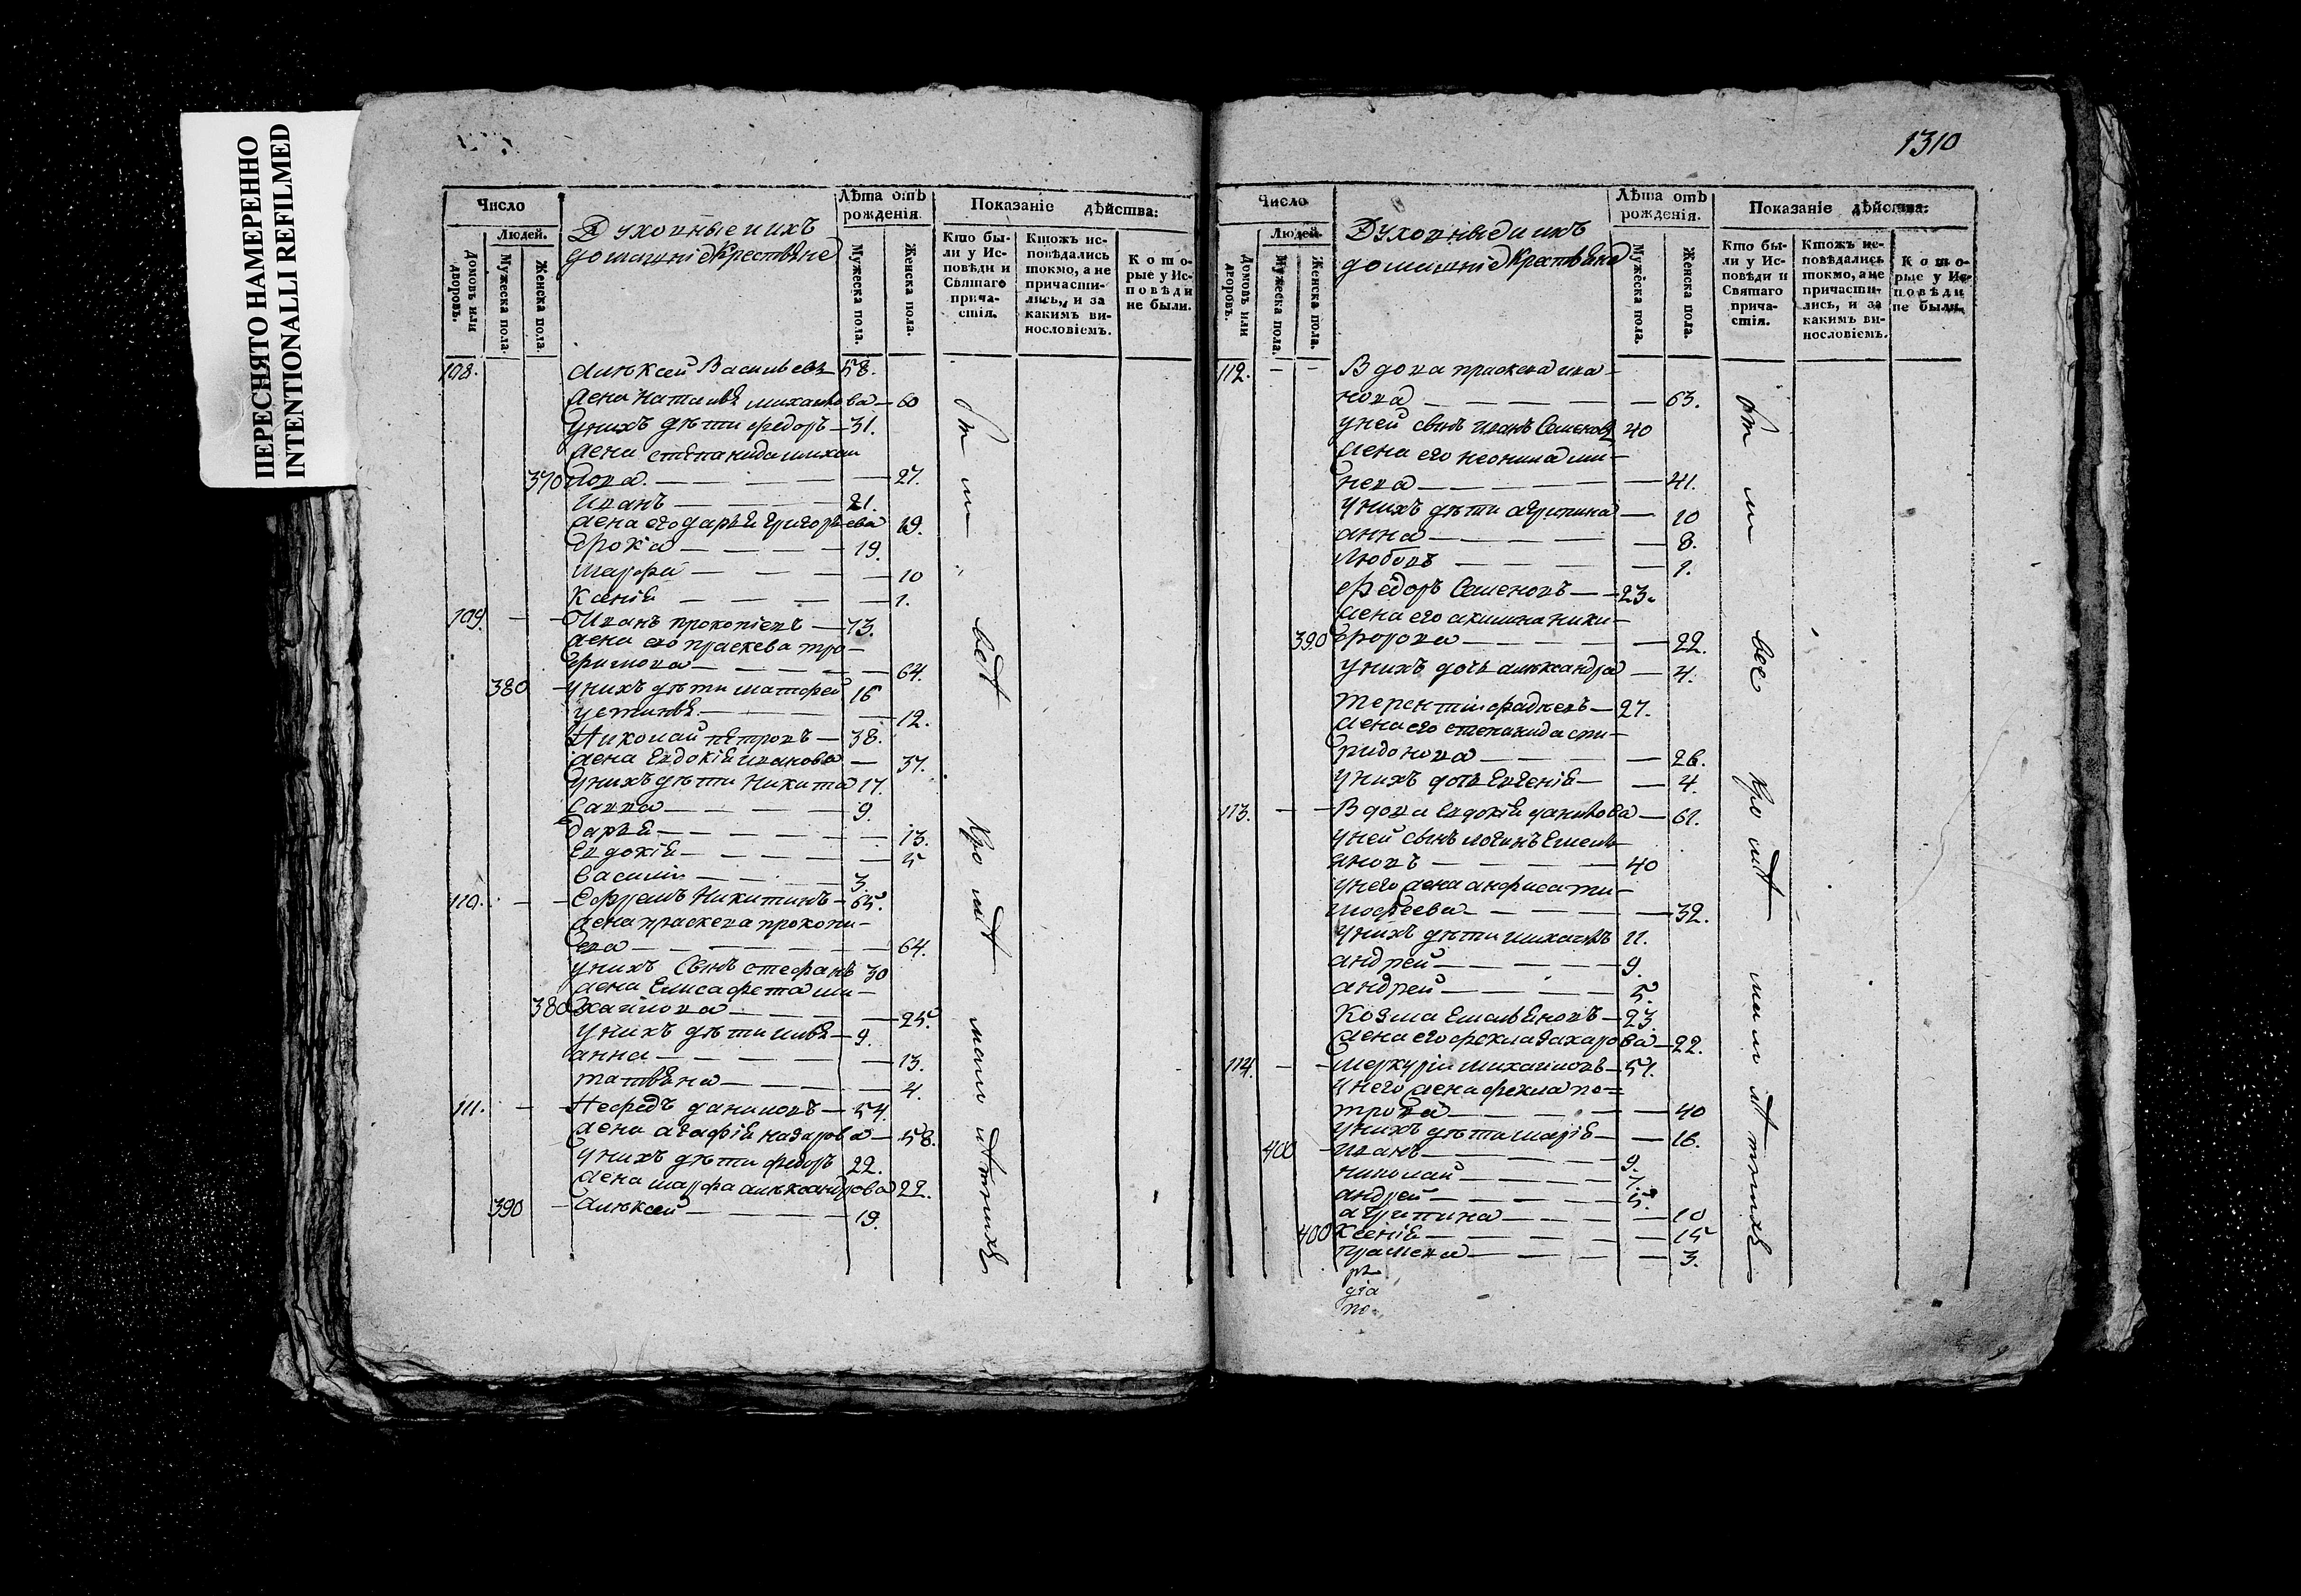 ПЕРЕСНЯТО НАМЕРЕННО
INTENTIONALLI REFILMED
Число
Людей.
Домовъ или дворовъ.
Мужеска пола.
Женска пола.
Духовные и ихъ
домашніе Крестьяне
Лѣта отъ рожденія.
Мужеска пола.
Женска пола.
Показаніе дѣйства:
Кто бы-
ли у Ис-
повѣди и
Святаго
прича-
стія.
Ктожъ ис-
повѣдались
токмо, а не
причасти-
лись, и за
какимъ ви-
нословіемъ.
Кото-
рые у Ис-
повѣди
не были.
108. Алексей Васильевъ 58.
Жена Наталья михаило ва 60
У нихъ дѣти федоръ 31.
Жена степанида михаи
370 лова. 27.
Иванъ 21.
Жена его дарья григорь ева 19.
19.
Марфа 10
Ксенія 1.
109. Иванъ прокопіевъ 73.
Жена его праскева тро-
фимова 64.
380 У нихъ дѣти матфей 16
устинья 12.
Николай петровъ 38.
Жена Евдокія иванова 37.
У нихъ дѣти Никита 17.
Савва 9.
дарья 13.
Евдокія 5
Василій 3.
110. Ефремъ Никитинъ 65.
Жена праскева прокопи-
ева 64.
У нихъ Сынъ стефанъ 30
Жена Елисафета ми-
380 хайлова 25.
У нихъ дѣти илья 9.
анна 13.
татьяна 4.
111. Нефедъ даниловъ 54.
Жена агафія назаров а 58.
У нихъ дѣти федоръ 22.
Жена марфа александрова 22.
390 Алексей 19.
всѣ
кромѣ
малолѣтнихъ
1310
Число
Людей
Домовъ или дворовъ.
Мужеска пола.
Женска пола.
Духовные и ихъ
домашніе Крестьяне
Лѣта отъ рожденія.
Мужеска пола.
Женска пола.
Показаніе дѣйства:
Кто бы-
ли у Ис-
повѣди и
Святаго
прича-
стія.
Ктожъ ис-
повѣдались
токмо, а не
причасти-
лись, и за
какимъ ви-
нословіемъ.
Кото-
рые у Ис-
повѣди
не были.
112. Вдова праскева ива-
нова 63.
У ней сынъ иванъ Семеновъ 40
Жена его неонила ми-
нева 41.
У нихъ дѣти агрипина 10
анна 8.
Любовь 1.
федоръ Семеновъ 23.
Жена его акилина ники-
390 форова 22.
У нихъ дочь александра 4.
терентій фадеевъ 27.
Жена его степанида спи-
ридонова 26.
У нихъ дочь Евгенія 4.
113. Вдова Евдокія данилова 61.
У ней сынъ логинъ Емель-
яновъ 40
У него Жена анфиса ти-
мофеева 32.
У нихъ дѣти михаилъ 11.
андрей 9.
андрей 5.
Козма Емельяновъ 23.
Жена его фекла захаро ва 22.
114. Меркурій михаиловъ 51.
У него Жена фекла пе-
трова 40
У нихъ дѣти марія 16.
400 иванъ 9.
николай 7.
андрей 5.
агрипина 10
400 Ксенія 15
3.
всѣ
кромѣ
малолѣтнихъ